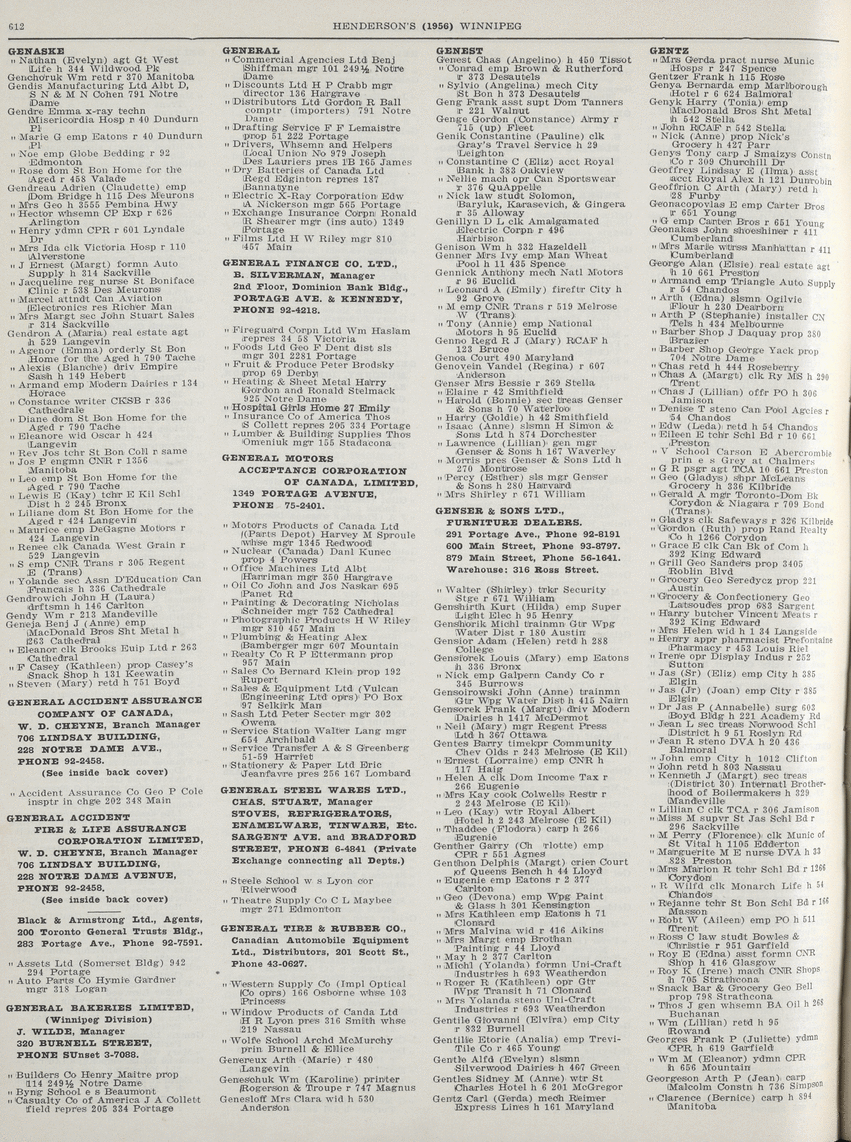 612
HENDERSON'S (1956) WINNIPEG
GENASKE
" Nathan (Evelyn) agt Gt West
Life h 344 Wildwood Pk
Genchoruk Wm retd r 370 Manitoba
Gendis Manufacturing Ltd Albt D,
S N & M N Cohen 791 Notre
Dame
Gendre Emma x-ray techn
Misericordia Hosp r 40 Dundurn
Pl
" Marie G emp Eatons r 40 Dundurn
Pl
" Noe emp Globe Bedding r 92
Edmonton
" Rose dom St Bon Home for the
Aged r 458 Valade
Gendreau Adrien (Claudette) emp
Dom Bridge h 115 Des Meurons
" Mrs Geo h 3555 Pembina Hwy
" Hector whsemn CP Exp r 626
Arlington
" Henry ydmn CPR r 601 Lyndale
Dr
" Mrs Ida clk Victoria Hosp r 110
Alverstone
" J Ernest (Margt) formn Auto
Supply h 314 Sackville
" Jacqueline reg nurse St Boniface
Clinic r 538 Des Meurons
" Marcel attndt Can Aviation
Electronics res Richer Man
" Mrs Margt sec John Stuart Sales
r 314 Sackville
Gendron A (Maria) real estate agt
h 529 Langevin
" Agenor (Emma) orderly St Bon
Home for the Aged h 790 Tache
" Alexis (Blanche) driv Empire
Sash h 149 Hebert
" Armand emp Modern Dairies r 134
Horace
" Constance writer CKSB r 336
Cathedrale
" Diane dom St Bon Home for the
Aged r 790 Tache
" Eleanore wid Oscar h 424
Langevin
" Rev Jos tchr St Bon Coll r same
" Jos P engmn CNR r 1356
Manitoba
" Leo emp St Bon Home for the
Aged r 790 Tache
" Lewis E (Kay) tchr E Kil Schl
Dist h 2 245 Bronx
" Liliane dom St Bon Home for the
Aged r 424 Langevin
" Maurice emp DeGagne Motors r
424 Langevin
" Renee clk Canada West Grain r
529 Langevin
" S emp CNR Trans r 305 Regent
E (Trans)
" Yolande sec Assn D'Education Can
Francais h 336 Cathedrale
Gendrowich John H (Laura)
drftsmn h 146 Carlton
Gendy Wm r 213 Mandeville
Geneja Benj J (Anne) emp
MacDonald Bros Sht Metal h
263 Cathedral
" Eleanor clk Brooks Euip Ltd r 263
Cathedral
" F Casey (Kathleen) prop Casey's
Snack Shop h 131 Keewatin
" Steven (Mary) retd h 751 Boyd
GENERAL ACCIDENT ASSURANCE
COMPANY OF CANADA,
W. D. CHEYNE, Branch Manager
706 LINDSAY BUILDING,
228 NOTRE DAME AVE.,
PHONE 92-2458.
(See inside back cover)
" Accident Assurance Co Geo P Cole
insptr in chge 202 348 Main
GENERAL ACCIDENT
FIRE & LIFE ASSURANCE
CORPORATION LIMITED,
W. D. CHEYNE, Branch Manager
706 LINDSAY BUILDING,
228 NOTRE DAME AVENUE,
PHONE 92-2458.
(See inside back cover)
Black & Armstrong Ltd., Agents,
200 Toronto General Trusts Bldg.,
283 Portage Ave., Phone 92-7591.
" Assets Ltd (Somerset Bldg) 942
294 Portage
" Auto Parts Co Hymie Gardner
mgr 318 Logan
GENERAL BAKERIES LIMITED,
(Winnipeg Division)
J. WILDE, Manager
320 BURNELL STREET,
PHONE SUnset 3-7088.
" Builders Co Henry Maitre prop
114 249½ Notre Dame
" Byng School e s Beaumont
" Casualty Co of America J A Collett
field repres 205 334 Portage
GENERAL
" Commercial Agencies Ltd Benj
Shiffman mgr 101 249½ Notre
Dame
" Discounts Ltd H P Crabb mgr
director 136 Hargrave
" Distributors Ltd Gordon R Ball
comptr (importers) 791 Notre
Dame
" Drafting Service F F Lemaistre
prop 51 222 Portage
" Drivers, Whsemn and Helpers
Local Union No 979 Joseph
Des Lauriers pres PB 165 James
" Dry Batteries of Canada Ltd
Regd Edginton repres 187
Bannatyne
" Electric X-Ray Corporation Edw
A Nickerson mgr 565 Portage
" Exchange Insurance Corpn Ronald
R Shearer mgr (ins auto) 1349
Portage
" Films Ltd H W Riley mgr 810
457 Main
GENERAL FINANCE CO. LTD.,
B. SILVERMAN, Manager
2nd Floor, Dominion Bank Bldg.,
PORTAGE AVE. & KENNEDY,
PHONE 92-4218.
" Fireguard Corpn Ltd Wm Haslam
repres 34 58 Victoria
" Foods Ltd Geo F Dent dist sls
mgr 301 2281 Portage
" Fruit & Produce Peter Brodsky
prop 69 Derby
" Heating & Sheet Metal Harry
Gordon and Ronald Stelmack
925 Notre Dame
" Hospital Girls Home 27 Emily
" Insurance Co of America Thos
S Collett repres 205 334 Portage
" Lumber & Building Supplies Thos
Omeniuk mgr 155 Stadacona
GENERAL MOTORS
ACCEPTANCE CORPORATION
OF CANADA, LIMITED,
1349 PORTAGE AVENUE,
PHONE 75-2401.
" Motors Products of Canada Ltd
(Parts Depot) Harvey M Sproule
whse mgr 1345 Redwood
" Nuclear (Canada) Danl Kunec
prop 4 Powers
" Office Machines Ltd Albt
Harriman mgr 350 Hargrave
" Oil Co John and Jos Naskar 695
Panet Rd
" Painting & Decorating Nicholas
Schneider mgr 752 Cathedral
" Photographic Products H W Riley
mgr 810 457 Main
" Plumbing & Heating Alex
Bamberger mgr 607 Mountain
" Realty Co R P Ettermann prop
957 Main
" Sales Co Bernard Klein prop 192
Rupert
" Sales & Equipment Ltd (Vulcan
Engineering Ltd oprs) PO Box
97 Selkirk Man
" Sash Ltd Peter Secter mgr 302
Owena
" Service Station Walter Lang mgr
654 Archibald
" Service Transfer A & S Greenberg
51-59 Harriet
" Stationery & Paper Ltd Eric
Jeanfavre pres 256 167 Lombard
GENERAL STEEL WARES LTD.,
CHAS. STUART, Manager
STOVES, REFRIGERATORS,
ENAMELWARE, TINWARE, Etc.
SARGENT AVE. and BRADFORD
STREET, PHONE 6-4841 (Private
Exchange connecting all Depts.)
" Steele School w s Lyon cor
Riverwood
" Theatre Supply Co C L Maybee
mgr 271 Edmonton
GENERAL TIRE & RUBBER CO.,
Canadian Automobile Equipment
Ltd., Distributors, 201 Scott St.,
Phone 43-0627.
" Western Supply Co (Impl Optical
Co oprs) 166 Osborne whse 103
Princess
" Window Products of Canda Ltd
H R Lyon pres 316 Smith whse
219 Nassau
" Wolfe School Archd McMurchy
prin Burnell & Ellice
Genereux Arth (Marie) r 480
Langevin
Geneschuk Wm (Karoline) printer
Rogerson & Troupe r 747 Magnus
Genesloff Mrs Clara wid h 530
Anderson
GENEST
Genest Chas (Angelino) h 450 Tissot
" Conrad emp Brown & Rutherford
r 373 Desautels
" Sylvio (Angelina) mech City
St Bon h 373 Desautels
Geng Frank asst supt Dom Tanners
r 221 Walnut
Genge Gordon (Constance) Army r
715 (up) Fleet
Genik Constantine (Pauline) clk
Gray's Travel Service h 29
Leighton
" Constantine C (Eliz) acct Royal
Bank h 383 Oakview
" Nellie mach opr Can Sportswear
r 376 QuAppelle
" Nick law studt Solomon,
Baryluk, Karasevich, & Gingera
r 35 Alloway
Genillyn D L clk Amalgamated
Electric Corpn r 496
Harbison
Genison Wm h 332 Hazeldell
Genner Mrs Ivy emp Man Wheat
Pool h 11 435 Spence
Gennick Anthony mech Natl Motors
r 96 Euclid
" Leonard A (Emily) fireftr City h
92 Grove
" M emp CNR Trans r 519 Melrose
W (Trans)
" Tony (Annie) emp National
Motors h 95 Euclid
Genno Regd R J (Mary) RCAF h
123 Bruce
Genoa Court 490 Maryland
Genoyein Vandel (Regina) r 607
Anderson
Genser Mrs Bessie r 369 Stella
" Elaine r 42 Smithfield
" Harold (Bonnie) sec treas Genser
& Sons h 70 Waterloo
" Harry (Goldie) h 42 Smithfield
" Isaac (Anne) slsmn H Simon &
Sons Ltd h 874 Dorchester
" Lawrence (Lillian) gen mgr
Genser & Sons h 167 Waverley
" Morris pres Genser & Sons Ltd h
270 Montrose
" Percy (Esther) sls mgr Genser
& Sons h 280 Harvard
" Mrs Shirley r 671 William
GENSER & SONS LTD.,
FURNITURE DEALERS.
291 Portage Ave., Phone 92-8191
600 Main Street, Phone 93-8797.
879 Main Street, Phone 56-1641.
Warehouse: 316 Ross Street.
" Walter (Shirley) trkr Security
Stge r 671 William
Genshirt Kurt (Hilda) emp Super
Light Elec h 95 Henry
Genshorik Michl trainmn Gtr Wpg
Water Dist r 180 Austin
Gensior Adam (Helen) retd h 288
College
Gensiorek Louis (Mary) emp Eatons
h 336 Bronx
" Nick emp Galpern Candy Co r
345 Burrows
Gensoirowski John (Anne) trainmn
Gtr Wpg Water Dist h 415 Nairn
Gensorek Frank (Margt) driv Modern
Dairies h 1417 McDermot
" Neil (Mary) mgr Regent Press
Ltd h 367 Ottawa
Gentes Barry timekpr Community
Chev Olds r 243 Melrose (E Kil)
" Ernest (Lorraine) emp CNR h
117 Haig
" Helen A clk Dom Income Tax r
266 Eugenie
" Mrs Kay cook Colwells Restr r
2 243 Melrose (E Kil)
" Leo (Kay) wtr Royal Albert
Hotel h 2 243 Melrose (E Kil)
" Thaddee (Flodora) carp h 266
Eugenie
Genther Garry (Ch rlotte) emp
CPR r 551 Agnes
Genthon Delphis (Margt) crier Court
of Queens Bench h 44 Lloyd
" Eugenie emp Eatons r 2 377
Carlton
" Geo (Devona) emp Wpg Paint
& Glass h 301 Kensington
" Mrs Kathleen emp Eatons h 71
Clonard
" Mrs Malvina wid r 416 Aikins
" Mrs Margt emp Brothan
Painting r 44 Lloyd
" May h 2 377 Carlton
" Michl (Yolanda) formn Uni-Craft
Industries h 693 Weatherdon
" Roger R (Kathleen) opr Gtr
Wpg Transit h 71 Clonard
" Mrs Yolanda steno Uni-Craft
Industries r 693 Weatherdon
Gentile Giovanni (Elvira) emp City
r 832 Burnell
Gentilie Etorie (Analia) emp Trevi-
Tile Co r 465 Young
Gentle Alfd (Evelyn) slsmn
Silverwood Dairies h 467 Green
Gentles Sidney M (Anne) wtr St
Charles Hotel h 6 201 McGregor
Gentz Carl (Gerda) mech Reimer
Express Lines h 161 Maryland
GENTZ
" Mrs Gerda pract nurse Munic
Hosps r 247 Spence
Gentzer Frank h 115 Rose
Genya Bernarda emp Marlborough
Hotel r 6 624 Balmoral
Genyk Harry (Tonia) emp
MacDonald Bros Sht Metal
h 542 Stella
" John RCAF r 542 Stella
" Nick (Anne) prop Nick's
Grocery h 427 Parr
Genys Tony carp J Smaizys Constn
Co r 309 Churchill Dr
Geoffrey Lindsay E (Ilma) asst
acct Royal Alex h 121 Dunrobin
Geoffrion C Arth (Mary) retd h
28 Furby
Geonacopovlas E emp Carter Bros
r 651 Young
" G emp Carter Bros r 651 Young
Geonakas John shoeshiner r 411
Cumberland
" Mrs Marie wtrss Manhattan r 411
Cumberland
George Alan (Elsie) real estate agt
h 10 661 Preston
" Armand emp Triangle Auto Supply
r 54 Chandos
" Arth (Edna) slsmn Ogilvie
Flour h 230 Dearborn
" Arth P (Stephanie) installer CN
Tels h 434 Melbourne
" Barber Shop J Daquay prop 380
Brazier
" Barber Shop George Yack prop
704 Notre Dame
" Chas retd h 444 Roseberry
" Chas A (Margt) clk Ry MS h 290
Trent
" Chas J (Lillian) offr PO h 306
Jamison
" Denise T steno Can Pool Agcies r
54 Chandos
" Edw (Leda) retd h 54 Chandos
" Eileen E tchr Schl Bd r 10 661
Preston
" V School Carson E Abercrombie
prin e s Grey at Chalmers
" G R psgr agt TCA 10 661 Preston
" Geo (Gladys) shpr McLeans
Grocery h 336 Kilbride
" Gerald A mgr Toronto-Dom Bk
Corydon & Niagara r 709 Bond
(Trans)
" Gladys clk Safeways r 326 Kilbride
" Gordon (Ruth) prop Rand Realty
Co h 1266 Corydon
" Grace E clk Can Bk of Com h
392 King Edward
" Grill Geo Sanders prop 3405
Roblin Blvd
" Grocery Geo Seredycz prop 221
Austin
" Grocery & Confectionery Geo
Latsoudes prop 683 Sargent
" Harry butcher Vincent Meats r
392 King Edward
" Mrs Helen wid h 1 34 Langside
" Henry appr pharmacist Prefontaine
Pharmacy r 453 Louis Riel
" Irene opr Display Indus r 252
Sutton
" Jas (Sr) (Eliz) emp City h 385
Elgin
" Jas (Jr) (Joan) emp City r 385
Elgin
" Dr Jas P (Annabelle) surg 603
Boyd Bldg h 221 Academy Rd
" Jean L sec treas Norwood Schl
District h 9 51 Roslyn Rd
" Jean R steno DVA h 20 436
Balmoral
" John emp City h 1012 Clifton
" John retd h 803 Nassau
" Kenneth J (Margt) sec treas
(District 30) Internatl Brother-
hood of Boilermakers h 329
Mandeville
" Lillian C clk TCA r 306 Jamison
" Miss M supvr St Jas Schl Bd r
296 Sackville
" M Perry (Florence) clk Munic of
St Vital h 1105 Edderton
" Marguerite M E nurse DVA h 33
828 Preston
" Mrs Marion R tchr Schl Bd r 1266
Corydon
" R Wilfd clk Monarch Life h 54
Chandos
" Rejanne tchr St Bon Schl Bd r 166
Masson
" Robt W (Aileen) emp PO h 511
Trent
" Ross C law studt Bowles &
Christie r 951 Garfield
" Roy E (Edna) asst formn CNR
Shop h 416 Glasgow
" Roy K (Irene) mach CNR Shops
h 705 Strathcona
" Snack Bar & Grocery Geo Bell
prop 798 Strathcona
" Thos J gen whsemn BA Oil h 268
Buchanan
" Wm (Lillian) retd h 95
Rowand
Georges Frank P (Juliette) ydmn
CPR h 619 Garfield
" Wm M (Eleanor) ydmn CPR
h 656 Mountain
Georgeson Arth P (Jean) carp
Malcolm Constn h 736 Simpson
" Clarence (Bernice) carp h 894
Manitoba